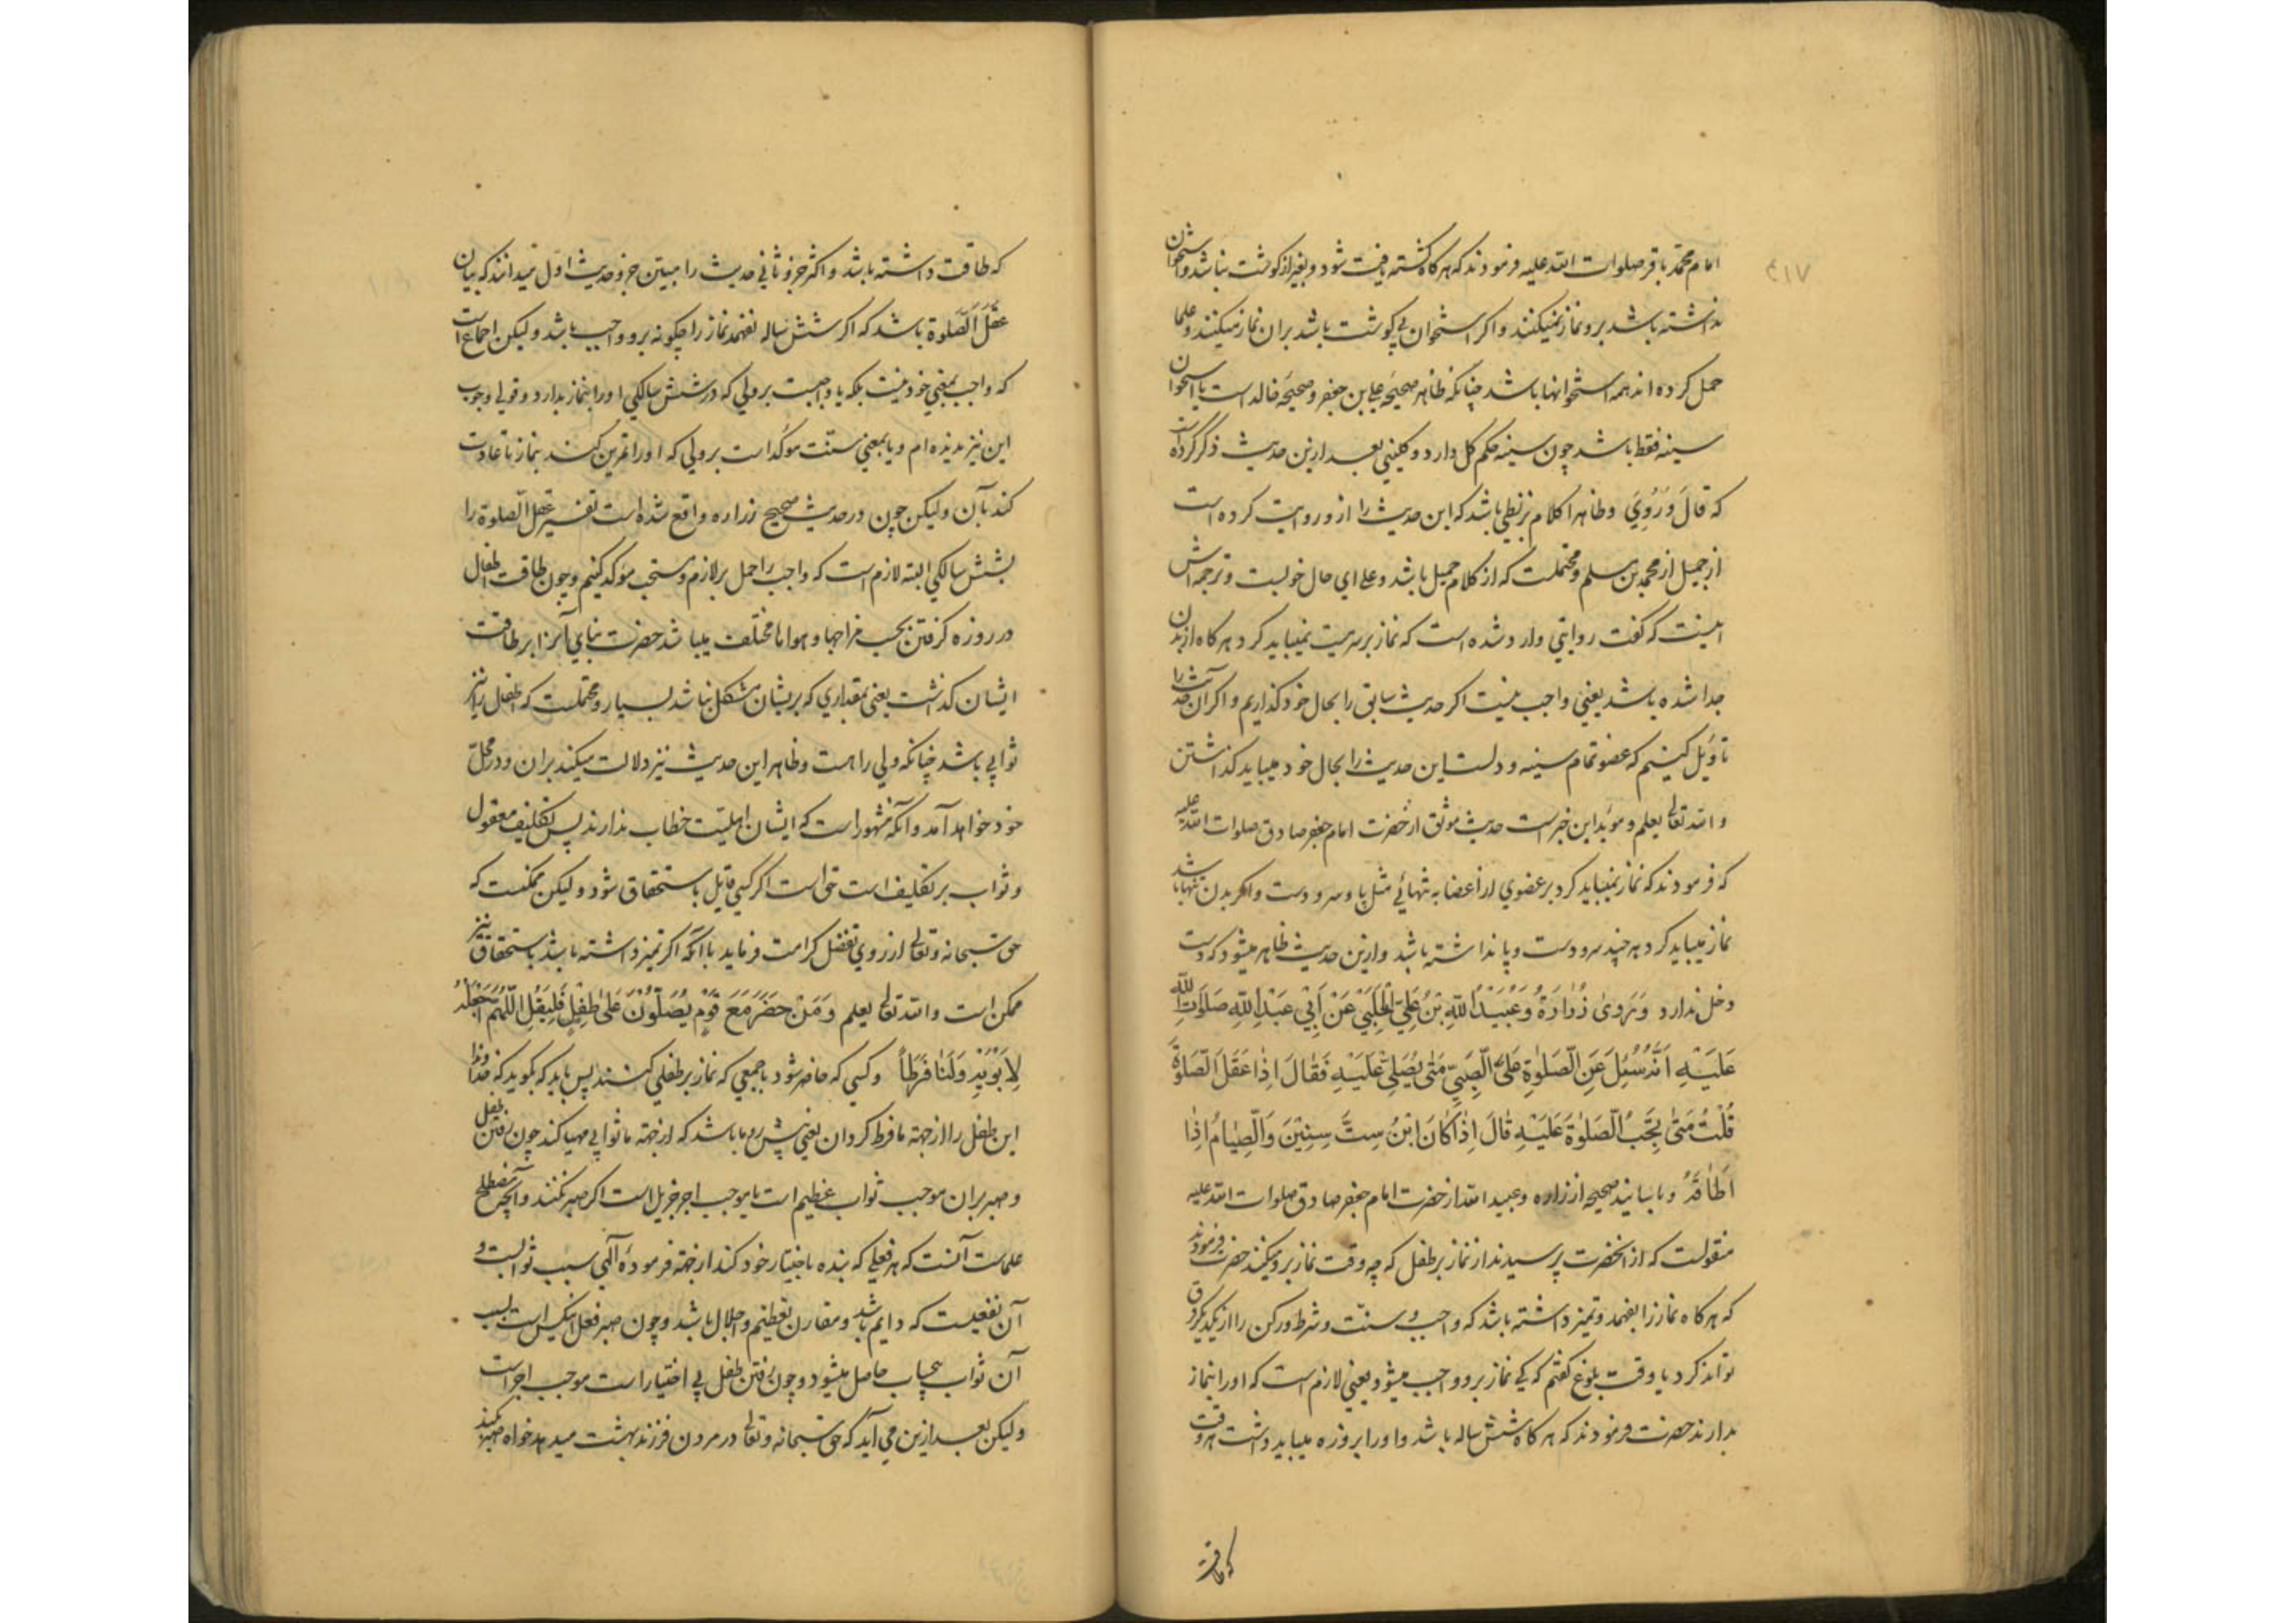 ۴۱۷
امام محمد باقر صلوات الله علیه فرمودند که هرکاه کشته یافت شود و بغیر از کوشت نباشد و استخوان
نداشته باشد برو نماز نمیکنند و اکر استخوان بی کوشت باشد بران نماز میکنند و علما
حمل کرده اند همه استخوانها باشد چنانکه ظاهر صحیحه علی بن جعفر و صحیحه خالد است یا استخوان
سینه فقط باشد چون سینه حکم کل دارد و کلینی بعد ازین حدیث ذکر کرده است
که قَالَ وَ رُوِيَ و ظاهرا کلام بزنطی باشد که این حدیث را ازو روایت کرده است
از جمیل از محمد بن مسلم و محتملست که از کلام جمیل باشد و علی ای حال خوبست و ترجمه اش
اینست که کفت روایتی وارد شده است که نماز بر سر میت نمیباید کرد هرکاه از بدن
جدا شده باشد یعنی واجب نیست اکر حدیث سابق را بحال خود کذاریم و اکر آن حدیث را
تاویل کنیم که عضو تمام سینه و دلست این حدیث را بحال خود میباید کذاشتن
و الله تعالی یعلم و موید این خبر است حدیث موثق از حضرت امام جعفر صادق صلوات الله علیه
که فرمودند که نماز نمیباید کرد بر عضوی از اعضا به تنهائی مثل پا و سر و دست و اکر بدن تنها باشد
نماز میباید کرد هر چند سر و دست و پا نداشته باشد و ازین حدیث ظاهر میشود که دست
دخل ندارد وَ رَوى زُرَارَةُ وَ عُبَيْدُ اللّهِ بْنُ عَلِيٍّ الْحَلَبِيِّ عَنْ أَبِي عَبْدِ اللّهِ صَلَوَاتُ اللّهِ
عَلَيْهِ أَنَّهُ سُئِلَ عَنِ الصَّلوةِ عَلَى الصَّبِيِّ مَتى يُصَلِّى عَلَيْهِ فَقَالَ اِذا عَقَلَ الصَّلوةَ
قُلْتُ مَتى يَجِبُ الصَّلوةَ عَلَيْهِ قَالَ اِذا كَانَ ابْنُ سِتِّ سِنِيْنَ وَ الصِّيَامُ اِذا
اَطَاقَهُ و باسانید صحیحه از زراره و عبید الله از حضرت امام جعفر صادق صلوات الله علیه
منقولست که از انحضرت پرسیدند از نماز بر طفل که چه وقت نماز برو میکنند حضرت فرمودند
که هرکاه نماز را بفهمد و تمیز داشته باشد که واجب و سنت و شرط و رکن را از یکدیکر فرق
تواند کرد یا وقت بلوغ کفتم که کی نماز برو واجب میشود یعنی لازم است که اورا بنماز
بدارند حضرت فرمودند که هرکاه شش ساله باشد و اورا بروزه میباید داشت هر وقت
که طاقت
که طاقت داشته باشد و اکثر جزو ثانی حدیث را مبین جزو حدیث اول میدانند که بیان
عَقَلَ الصَّلوةَ باشد که اکر شش ساله نفهمد نماز را چکونه برو واجب باشد ولیکن اجماع است
که واجب بمعنی خود نیست بلکه یا واجبست بر ولی که در شش سالکی اورا بنماز بدارد و قولی بوجوب
این نیز ندیده ام و یا بمعنی سنت موکد است بر ولی که اورا تمرین کنند بنماز تا عادت
کند بآن ولیکن چون در حدیث صحیح زراره واقع شده است تفسیر عقل الصلوة را
بشش سالکی البته لازم است که واجب را حمل بر لازم و مستحب موکد کنیم و چون طاقت اطفال
در روزه کرفتن بحسب مزاجها و هواها مختلف میباشد حضرت بنای آنرا بر طاقت
ایشان کذاشت یعنی بمقداری که بریشان مشکل نباشد بسیار و محتملست که اطفال را نیز
ثوابی باشد چنانکه ولی را هست و ظاهر این حدیث نیز دلالت میکند بران و در محل
خود خواهد آمد و آنکه مشهور است که ایشان اهلیت خطاب ندارند پس تکلیف معقول
و ثواب بر تکلیف است حق است اکر کسی قایل باستحقاق شود ولیکن ممکنست که
حق سبحانه و تعالی از روی تفضل کرامت فرماید با آنکه اکر تمیز داشته باشد باستحقاق نیز
ممکن است و الله تعالی یعلم وَ مَنْ حَضَرَ مَعَ قَوْمٍ يُصَلُّوْنَ عَلى طِفْلٍ فَلْيَقُلْ اللّهُمَّ اجْعَلْهُ
لِاَبَوَيْهِ وَ لَنَا فَرَطاً و کسی که حاضر شود با جمعی که نماز بر طفلی کنند پس باید که بکوید که خداوندا
این طفل را از جهة ما فرط کردان یعنی پیش رو ما باشد که از جهة ما ثوابی مهیا کند چون رفتن طفل
و صبر بران موجب ثواب عظیم است یا موجب اجر جزیل است اکر صبر نکنند و آنچه مصطلح
علماست آنست که هر فعلی که بنده باختیار خود کند از جهة فرموده الهی سبب ثوابست و
آن نفعیست که دایم باشد و مقارن تعظیم و اجلال باشد و چون صبر فعل این کس است بسبب
آن ثواب بیحساب حاصل میشود و چون رفتن طفل بی اختیار است موجب اجر است
ولیکن بعد ازین می آید که حق سبحانه و تعالی در مردن فرزند بهشت میدهد خواه صبر کنند